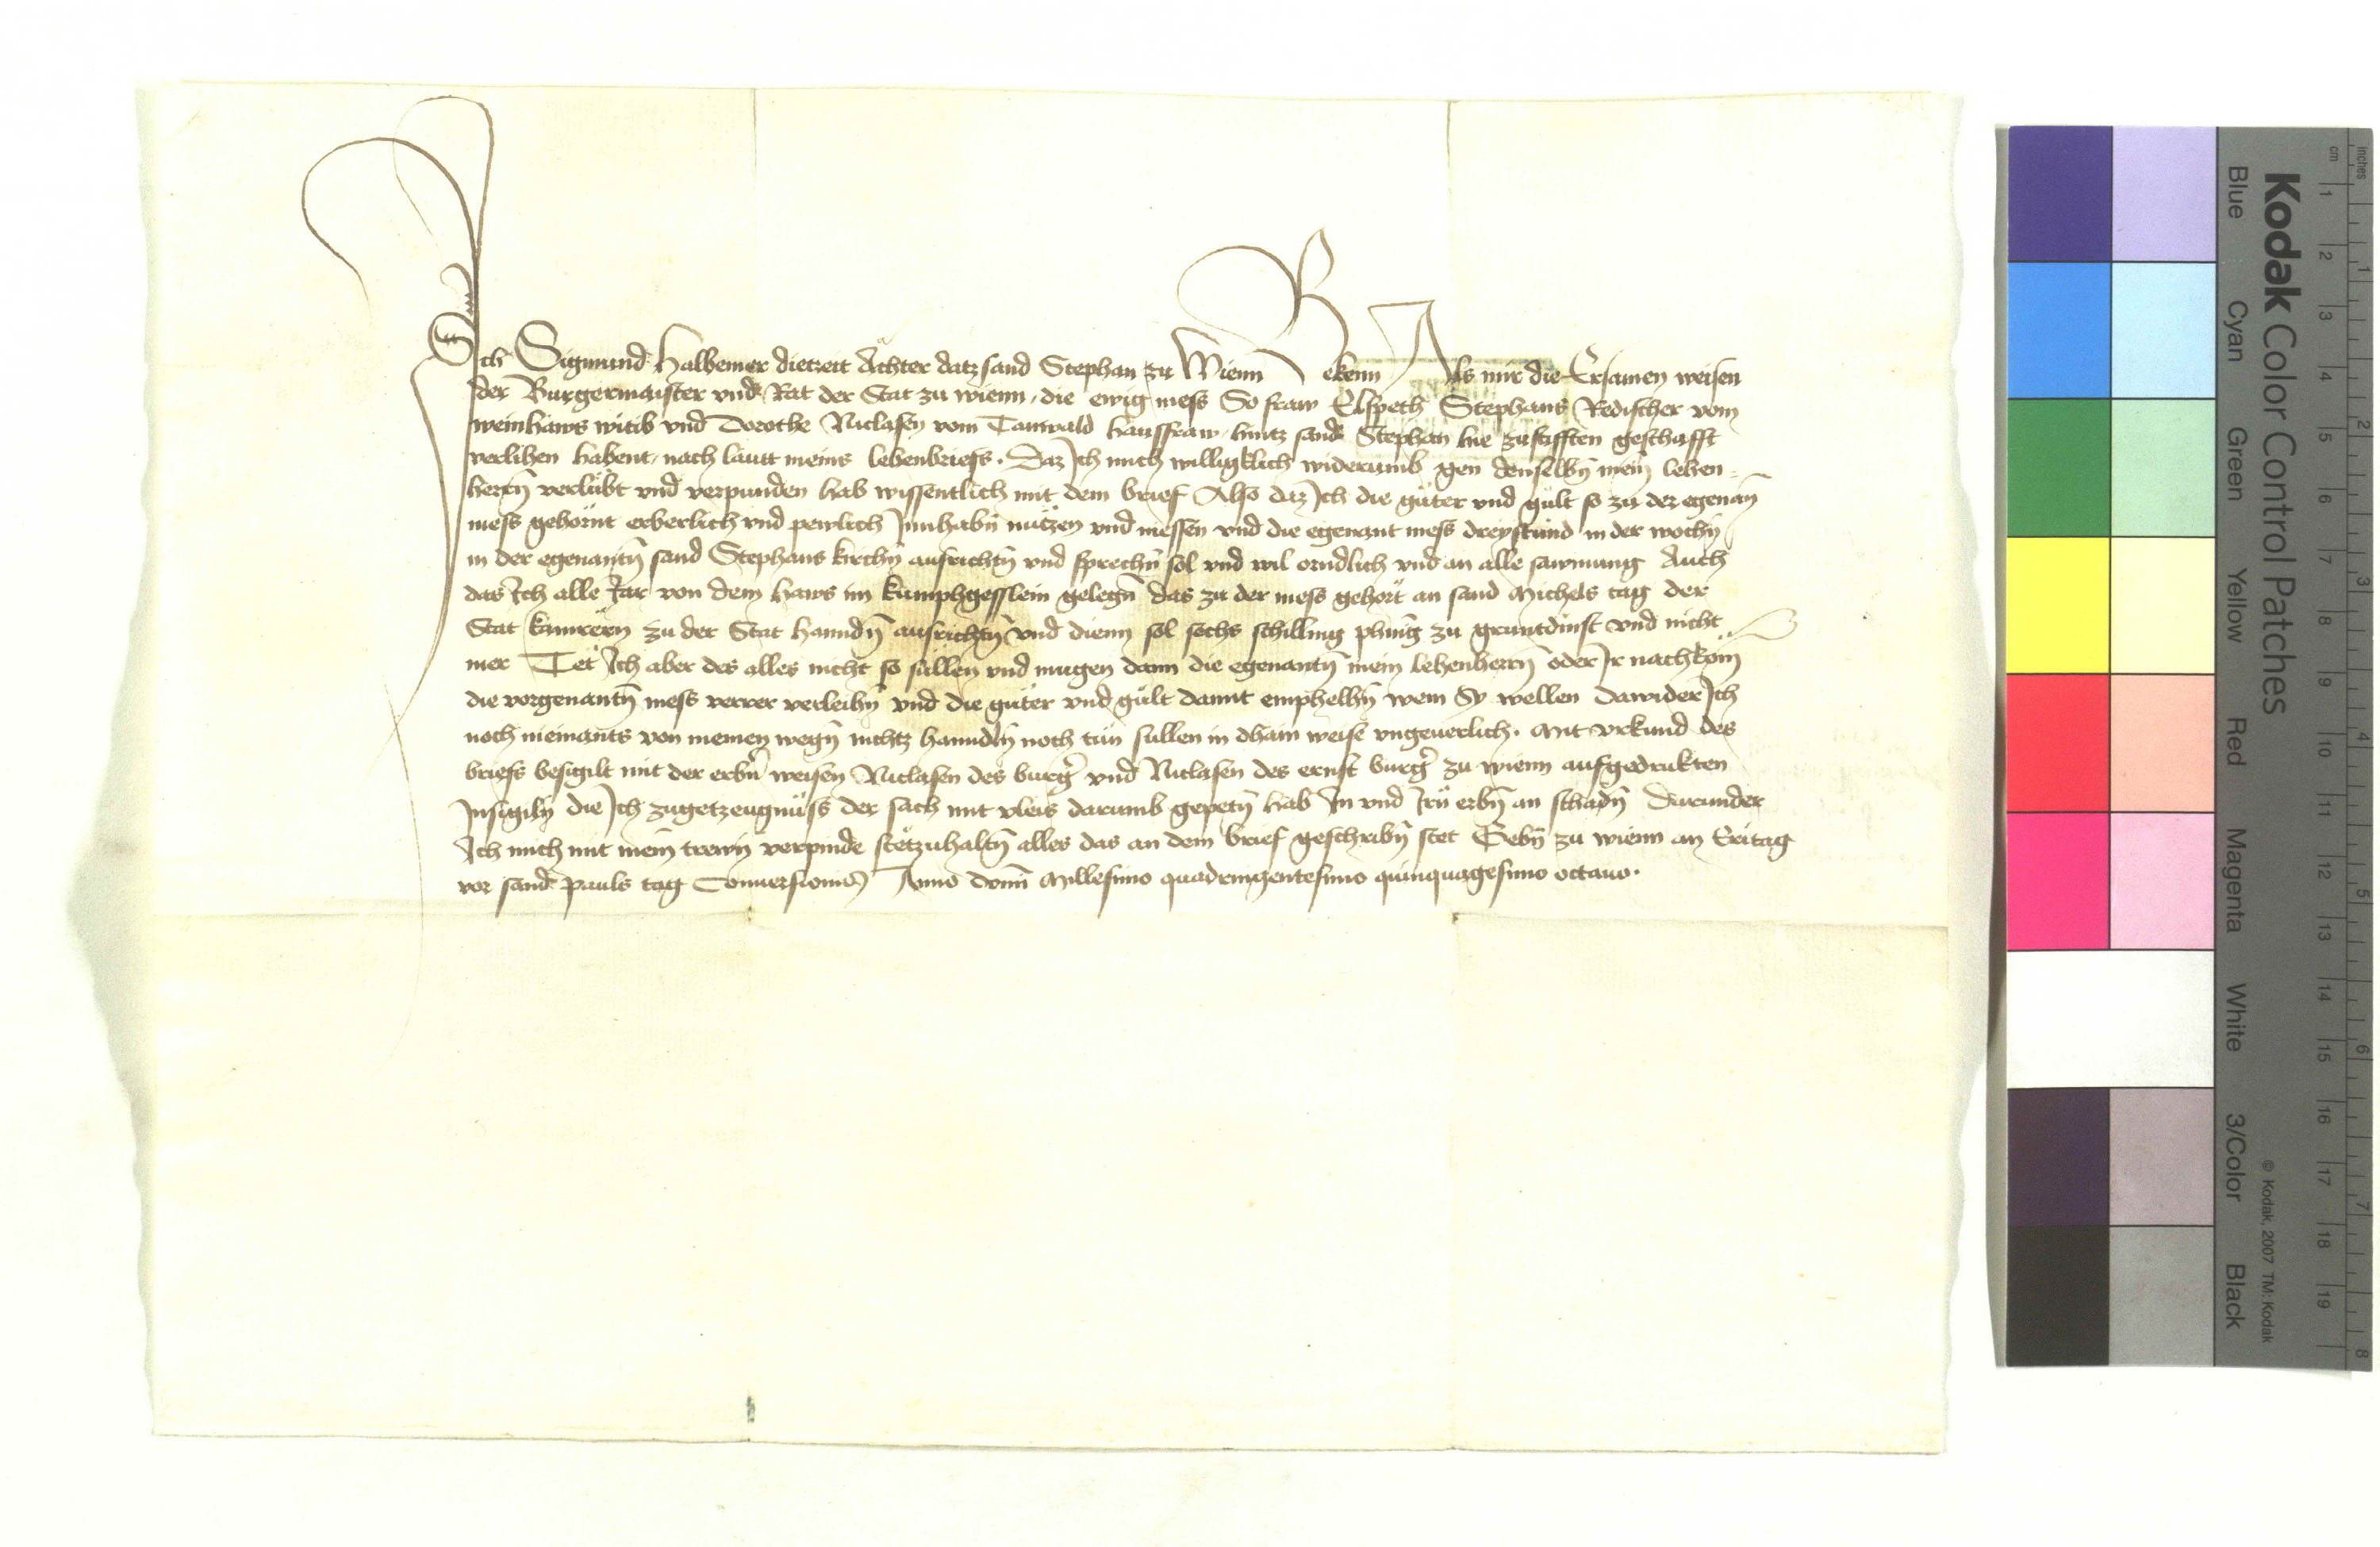 Ich Sigmund Halbemer dietzeit Achter datz sand Stephan zu Wienn Bekenn Als mir die Ersamen weisen
der Burgermaister vnd Rat der Stat zu wienn, die ewig mess So fraw Elspeth Stephans Redischer vom
weinhaws witib vnd Dorothe Niclasen vom Tanwald hausfraw, hintz sand Stephan hie zustifften geschafft
verlihen habent, nach lautt meins lehenbriefs. Daz Ich mich willigklich widerumb gen denselbn̄ mein̄ lehen=
herrn̄ verlubt vnd verpunden hab wissentlich mit dem brief Also daz Ich die güter vnd gült so zu der egenan̄
mess gehörnt erberlich vnd pewlich Innhabn̄ nützen vnd niessen vnd die egenant mess dreystund in der wochn̄
in der egenantn̄ sand Stephans kirchn̄ ausrichtn̄ vnd sprechn̄ sol vnd wil orndlich vnd an alle sawmung Auch
das Ich alle Jar von dem haws im kumphgesslein gelegn̄ das zu der mess gehört an sand Michels tag der
Stat kamrern zu der Stat hanndn̄ ausrichtn̄ vnd dienn sol sechs schilling phnīg zu gruntdinst vnd nicht
mer Tet Ich aber des alles nicht so süllen vnd mugen dann die egenantn̄ mein lehenherrn̄ oder Ir nachköm̄
die vorgenantn̄ mess verrer verleihn̄ vnd die güter vnd gült damit emphelhn̄ wem Sy wellen dawider Ich
noch niemants von meinen wegn̄ nichtz hanndln̄ noch tun sullen in dhain weise vngeuerlich. Mit vrkund des
briefs besigilt mit der erbn̄ weisen Niclasen des burḡ vnd Niclasen des ernst burḡ zu wienn aufgedrukten
Insigiln̄ die Ich zugetzeugnüss der sach mit vleis darumb gepetn̄ hab In vnd Irn̄ erbn̄ an schadn̄ Darunder
Ich mich mit mein̄ trewn̄ verpinde stetzuhaltn̄ alles das an dem brief geschribn̄ stet Gebn̄ zu wienn an Eritag
vor sand Pauls tag Conuersionis Anno domī Millesimo quadringentesimo quinquagesimo octauo.
Kodak Color Control Patches
Blue Cyan Green Yellow Red Magenta White 3/Color Black
© Kodak, 2007 TM: Kodak
inches 1 2 3 4 5 6 7 8
cm 1 2 3 4 5 6 7 8 9 10 11 12 13 14 15 16 17 18 19